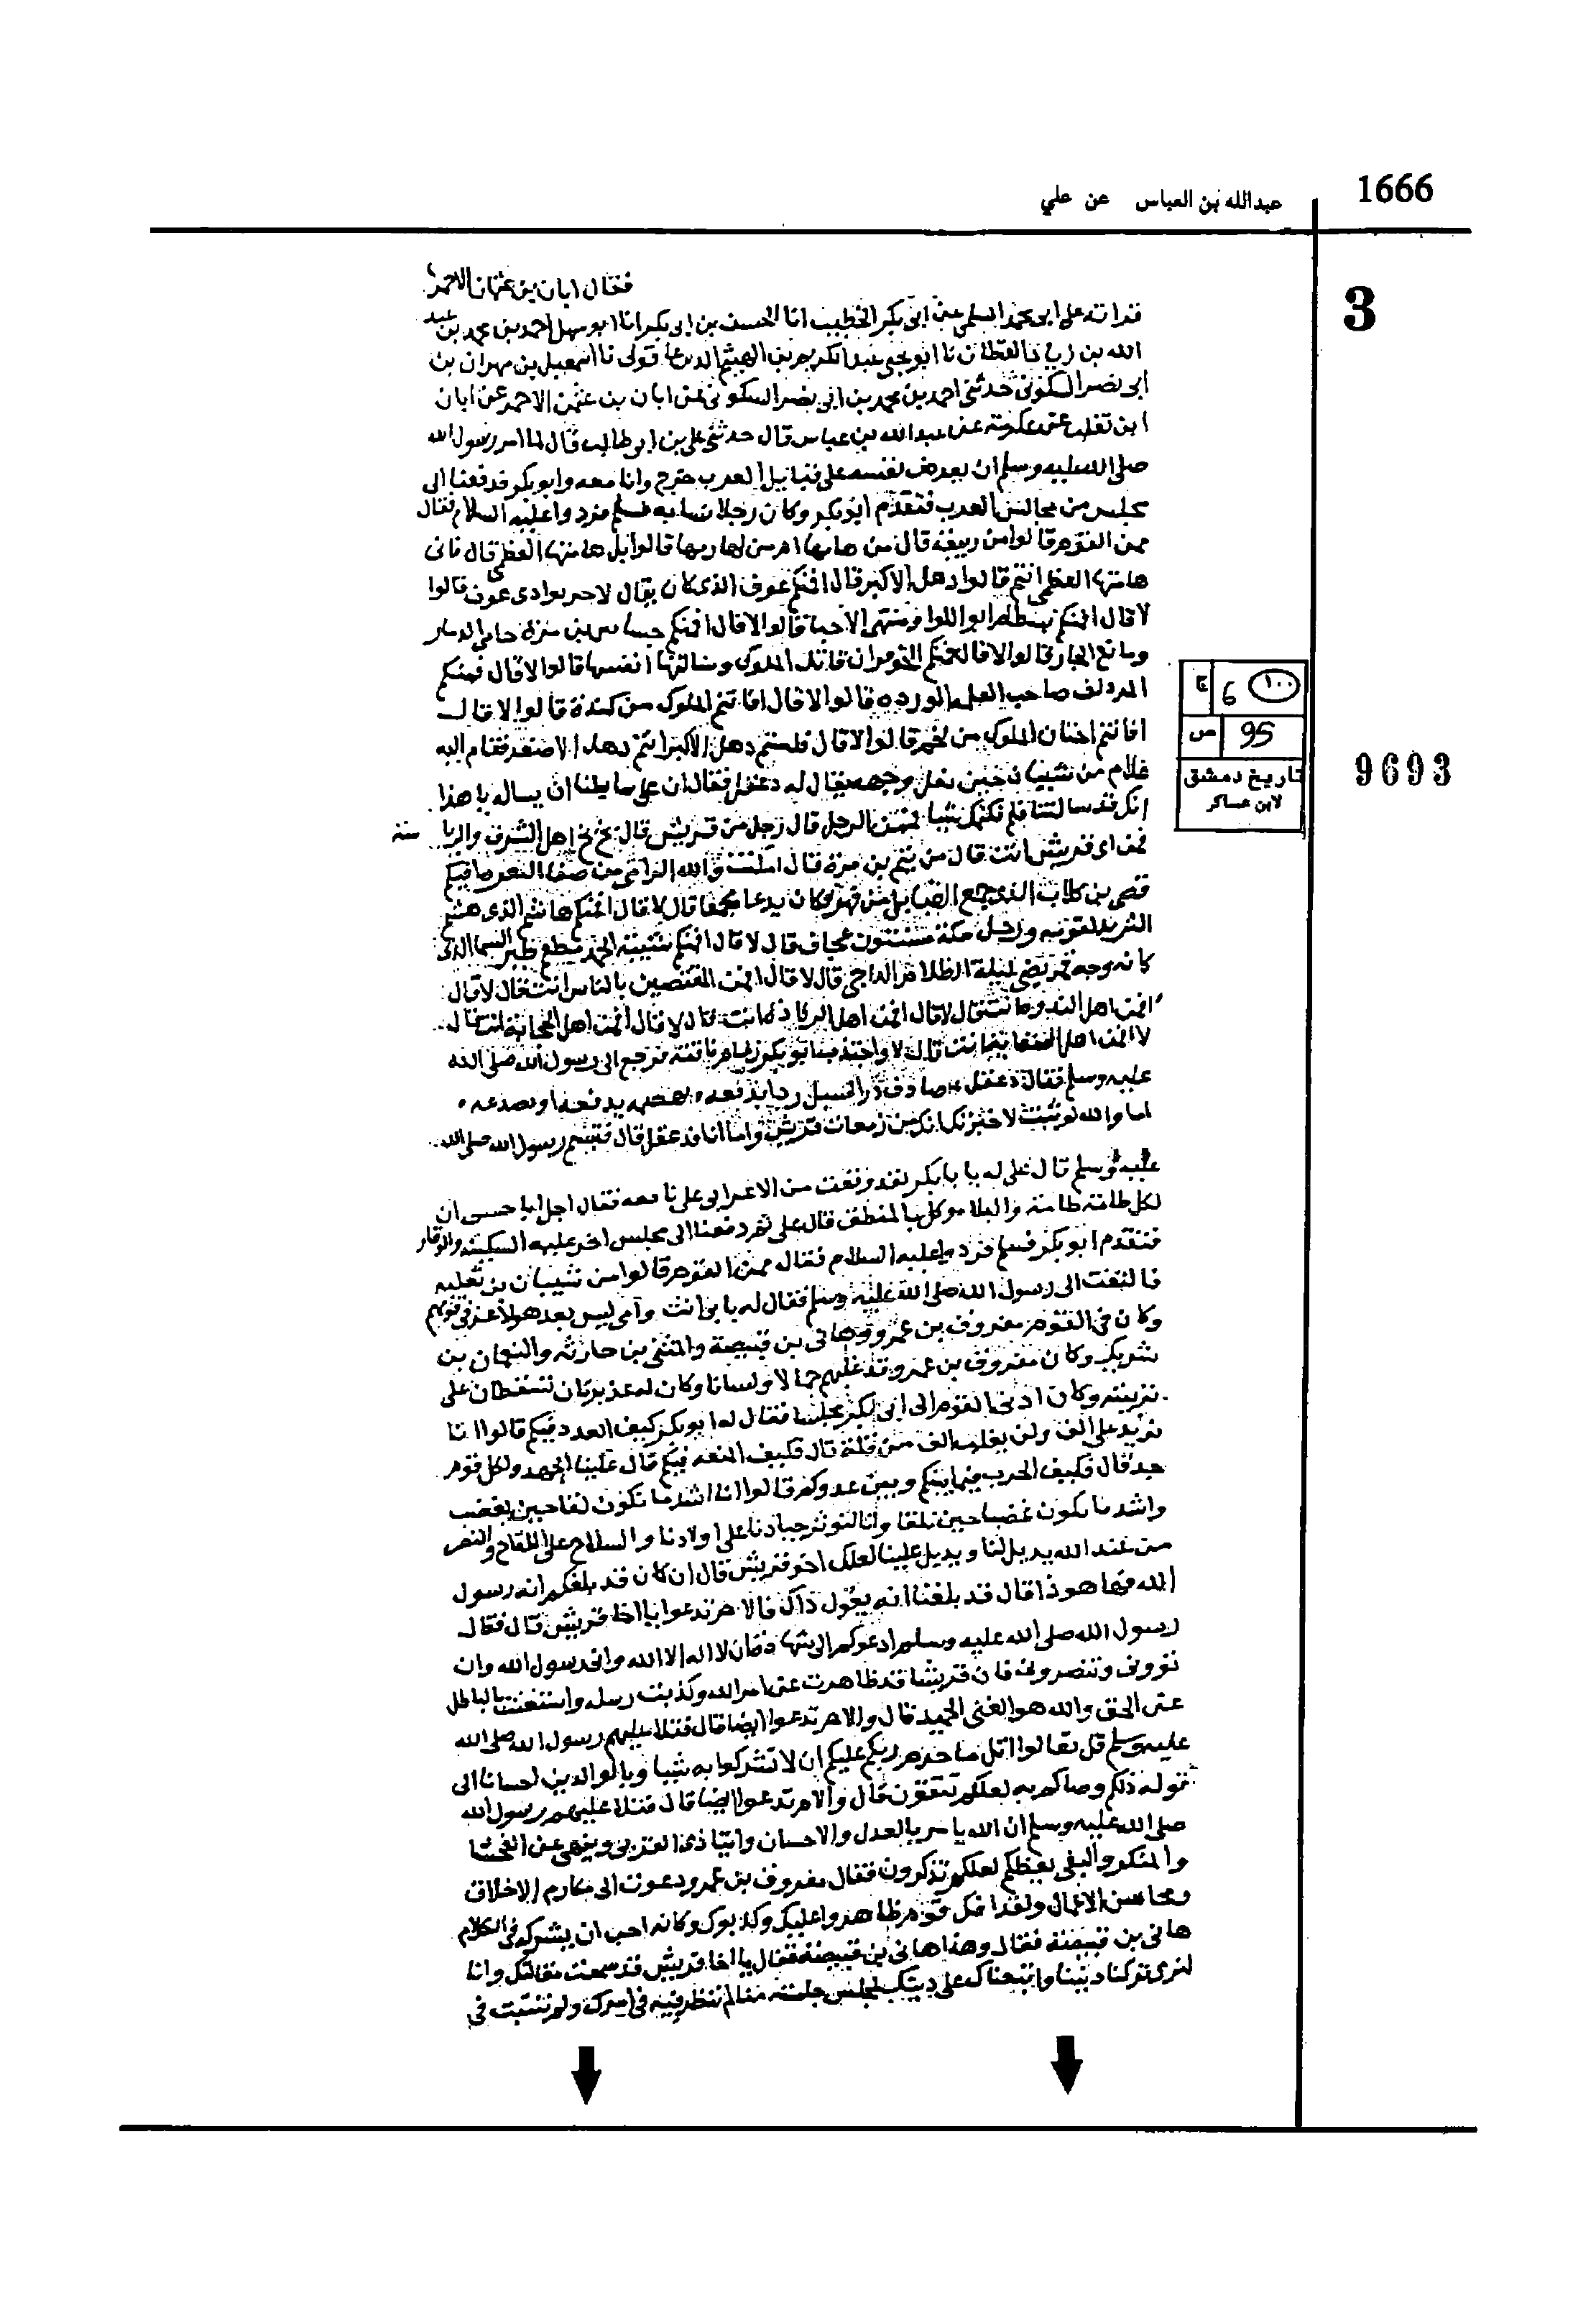 1666
عبدالله بن العباس عن علي
3
فقال ابان بن عثمان الاحمر
قراته على ابى محمد السلمى عن ابى بكر الخطيب انا الحسن بن ابى بكر انا ابو سهل احمد بن محمد بن عبد
الله بن زياد نا القطان نا ابو يحيى عبد الكريم بن الهيثم الديرعاقولى نا اسمعيل بن مهران بن
ابى نصر السكونى حدثنى احمد بن محمد بن ابى نصر السكونى عن ابان بن عثمن الاحمر عن ابان
ابن تغلب عن عكرمة عن عبدالله بن عباس قال حدثنى على بن ابى طالب قال لما امر رسول الله
صلى الله عليه وسلم ان يعرض نفسه على قبايل العرب خرج وانا معه وابو بكر فدفعنا الى
مجلس من مجالس العرب فتقدم ابو بكر وكان رجلا نسابه فسلم فردوا عليه السلام فقال
ممن القوم قالوا من ربيعة قال من هامها ام من لهازمها قالوا بل هامتها العظمى قال فاى
هامتها العظمى انتم قالوا ذهل الاكبر قال افمنكم عوف الذى كان يقال لا حر بوادى عوف قالوا
لا قال افمنكم بسطام ابو اللوا ومنتهى الاحيا قالوا لا قال افمنكم جساس بن مرة حامى الذمار
ومانع الجار قالوا لا قال افمنكم الحوفزان قاتل الملوك وسالبها انفسها قالوا لا قال فمنكم
المزدلف صاحب العمامه الورده قالوا لا قال افانتم الملوك من كندة قالوا لا قال
افانتم اختان الملوك من لخم قالوا لا قال فلستم ذهل الاكبر انتم ذهل الاصغر فقام اليه
غلام من شيبان حين بقل وجهه يقال له دغفل فقال ان على سايلنا ان يساله يا هذا
انك قد سالتنا فلم نكتمك شيا فمن الرجل قال رجل من قريش قال بخ بخ اهل الشرف والريا سة
فمن اى قريش انت قال من تيم بن مرة قال امكنت والله الرامى من صفا الثغر افيكم
قصى بن كلاب الذى جمع القبايل من فهر وكان يدعا مجمعا قال لا قال افمنكم هاشم الذى هشم
الثريد لقومه ورجال مكة مسنتون عجاف قال لا قال افمنكم شيبة الحمد مطعم طير السما الذى
كان وجهه قمر يضى ليلة الظلام الداجى قال لا قال افمن المفيضين بالناس انت قال لا قال
افمن اهل الندوه انت قال لا قال افمن اهل الرفادة انت قال لا قال افمن اهل الحجابة انت قال
لا قال افمن اهل السقاية انت قال لا واجتذب ابو بكر زمام ناقته فرجع الى رسول الله صلى الله
عليه وسلم فقال دغفل صادف در السيل درا يدفعه يهضبه يدفعه او يصدعه
اما والله لو ثبت لاخبرتك انك من زمعات قريش او ما انا بدغفل قال فتبسم رسول الله صلى الله
عليه وسلم قال على له يا با بكر لقد وقعت من الاعرابى على باقعه فقال اجل ابا حسن ان
لكل طامة طامة والبلا موكل بالمنطق قال على ثم دفعنا الى مجلس اخر عليه السكينة والوقار
فتقدم ابو بكر فسلم فردوا عليه السلام فقال ممن القوم قالوا من شيبان بن ثعلبه
فالتفت الى رسول الله صلى الله عليه وسلم فقال له بابى انت وامى ليس بعد هولا عز فى قومهم
وكان فى القوم مفروق بن عمرو وهانى بن قبيصة والمثنى بن حارثه والنعمان بن
شريك وكان مفروق بن عمرو قد غلبهم جمالا ولسانا وكان له غديرتان تسقطان على
تريبته وكان ادنى القوم الى ابى بكر مجلسا فقال له ابو بكر كيف العدد فيكم قالوا انا
نزيد على الف ولن يغلب الف من قلة قال فكيف المنعه فيكم قال علينا الجهد ولكل قوم
جد قال فكيف الحرب فيما بينكم وبين عدوكم قالوا انا اشد ما نكون لقا حين نغضب
واشد ما نكون غضبا حين نلقا وانا لنوثر جيادنا على اولادنا والسلاح على اللقاح والنصر
من عند الله يديل لنا ويديل علينا لعلك اخو قريش قال ان كان قد بلغكم انه رسول
الله فها هو ذا قال قد بلغنا انه يقول ذاك فالام تدعوا يا اخا قريش قال فقال
رسول الله صلى الله عليه وسلم ادعوكم الى شهادة ان لا اله الا الله وانى رسول الله وان
تؤوونى وتنصرونى فان قريشا قد ظاهرت على امر الله وكذبت رسله واستغنت بالباطل
عن الحق والله هو الغنى الحميد قال والام تدعوا ايضا قال فتلا عليهم رسول الله صلى الله
عليه وسلم قل تعالوا اتل ما حرم ربكم عليكم ان لا تشركوا به شيا وبالوالدين احسانا الى
قوله ذلكم وصاكم به لعلكم تتقون قال والام تدعوا ايضا قال فتلا عليهم رسول الله
صلى الله عليه وسلم ان الله يامر بالعدل والاحسان وايتا ذى القربى وينهى عن الفحشا
والمنكر والبغى يعظكم لعلكم تذكرون فقال مفروق بن عمرو دعوت الى مكارم الاخلاق
ومحاسن الاعمال ولقد افك قوم ظاهروا عليك وكذبوك وكانه احب ان يشركه فى الكلام
هانى بن قبيصة فقال وهذا هانى بن قبيصة فقال يا اخا قريش قد سمعت مقالتك وانا
لنرى تركنا ديننا واتبعناك على دينك لمجلس جلسته منا لم ننظر فيه فى امرك ولم نتثبت فى
ج 6 ١٠٠
ص 95
تاريخ دمشق
لابن عساكر
9693